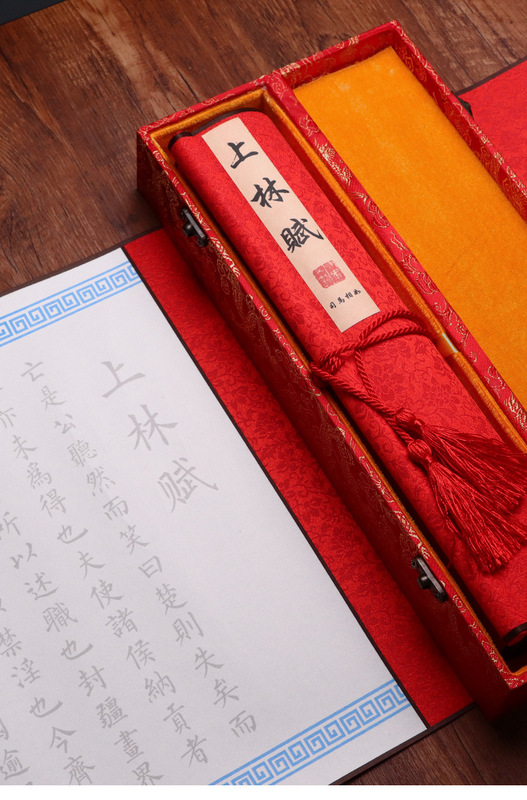 上林賦
司馬相如
上林赋
亡是公聽然而笑曰楚則失矣而
亦未為得也夫使諸侯納貢者
所以述職也封疆畫界
禁淫也今齊
逾